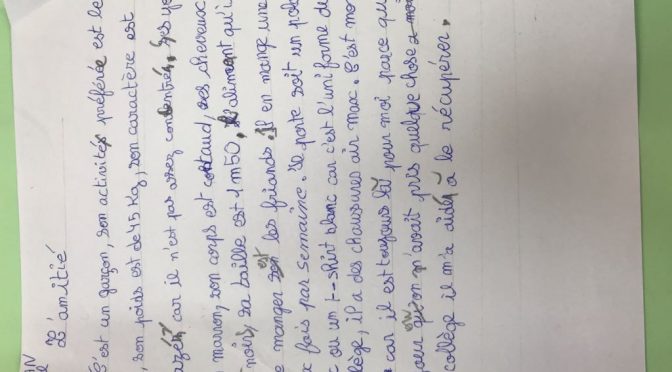 IN
L'amitié
C'est un garçon, son activités préférée est le
, son poids est de 45 Kg, son caractère est
car il n'est pas assez concentré, ses ye
marron, son corps est costaud, ses cheveux
noirs, sa taille est 1m50, l'aliment qu'i
manger est les friands. Il en mange une
fois par semaine. Il porte soit un pol
ou un t-shirt blanc car c'est l'uniforme du
llège, il a des chaussures air max. C'est mon
car il est toujours là pour moi parce qu
jour on m'avait pris quelque chose
collège il m'a aidé à le récupérer.